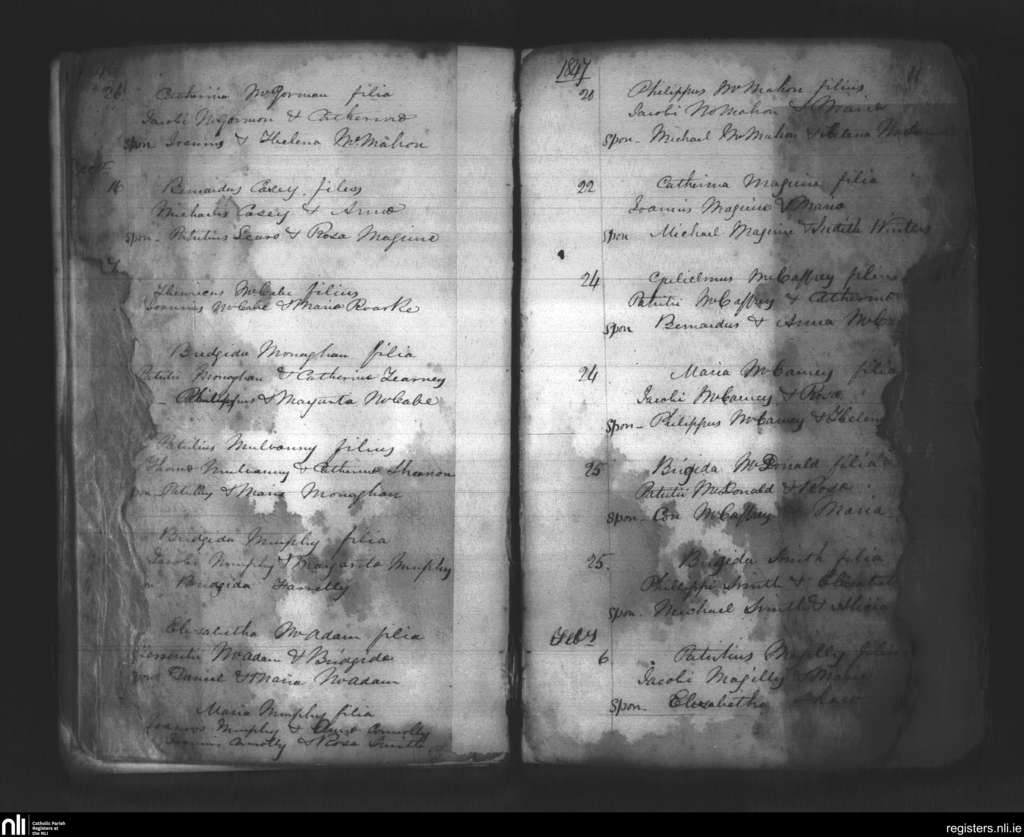 26 Catherina McGorman filia
Jacobi McGormon & Catherinae
Spon Joannis & Thelena McMahon
16 Bernardus Casey filius
Michaelis Casey & Annae
Spon - Patritius & Rosa Maguire
Thenricus McCabe filius
Joannis McCabe & Maria Roarke
Bridgida Monaghan filia
Patritii Monaghan & Catherina Kearney
- Philippus & Margarita McCabe
Patritius Mulvanny filius
Mulvanny & Catherina
Patk & Maria Monaghan
Bridgida Murphy filia
Jacobi Murphy & Margarita Murphy
Bridgida Farrelly
Elizabetha McAdam filia
McAdam & Bridgida
Spon Daniel & Maria McAdam
Maria Murphy filia
Joannis Murphy & Connolly
Joannis Connolly & Rosa
1847
11
20 Philippus McMahon filius
Jacobi McMahon & Maria
Spon - Michael McMahon & Helena
22 Catherina Maguire filia
Joannis Maguire & Maria
Spon Michael Maguire & Judith Winters
24 Gulielmus McCaffrey filius
Patritii McCaffrey & Catherina
Spon Bernardus & Anna McCa
24 Maria McCamey filia
Jacobi McCamey & Rosa
Spon - Philippus McCamey & Thelena
25 Brigida McDonald filia
Patritii McDonald & Rosa
Spon - Con McCaffrey Maria
25. Brigida Smith filia
Philippi Smith & Elizabeth
Spon - Michael Smith & Alicia
Feby
6 Patritius Magilly filius
Jacobi Magilly & Maria
Spon - Elizabetha
nli
Catholic Parish
Registers at
the NLI
registers.nli.ie